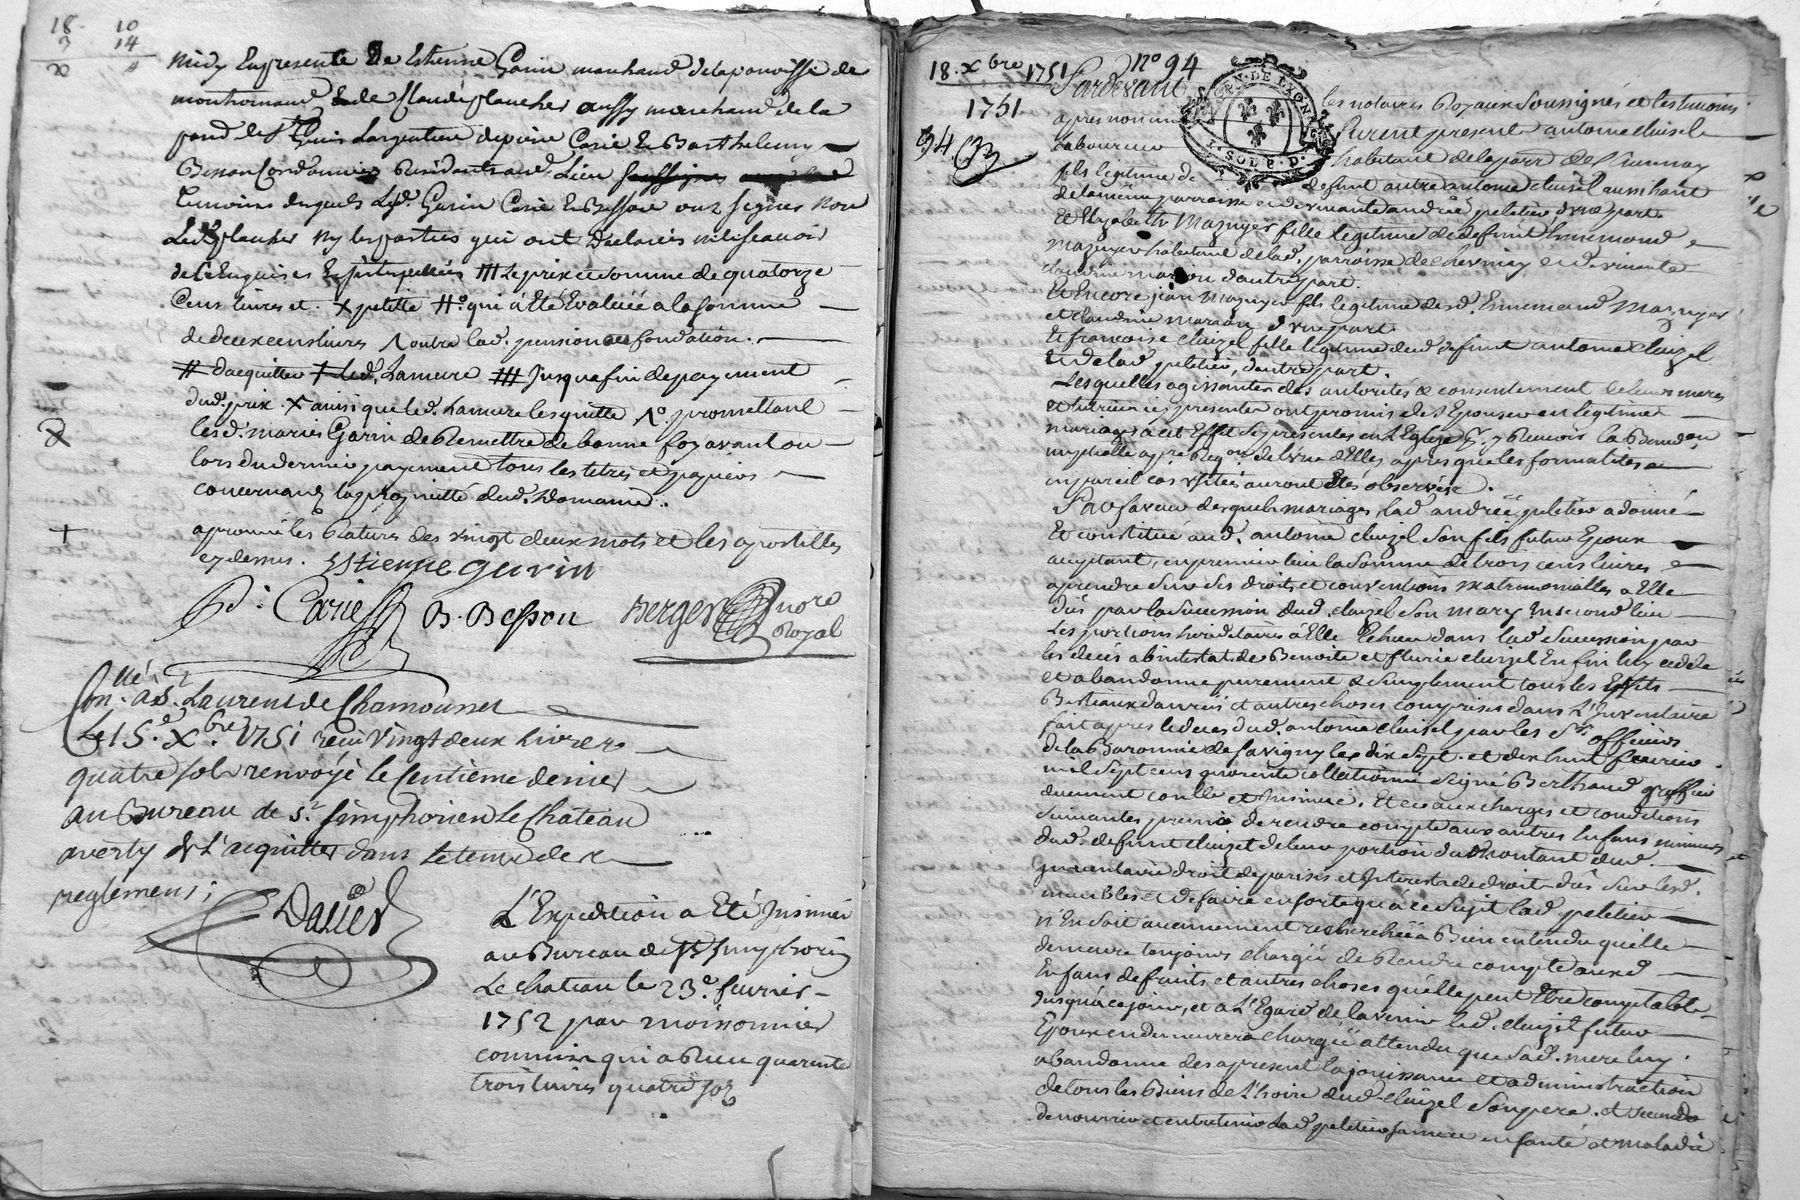 18. 10
3 14
midy En presence De Estienne Garin marchand dela parroisse de
montromand & de Claude plancher aussy marchand de la
parr. de St Genis Largentiere de pierre Carié & Barthelemy
Besson Cordonnier Residants aud. Lieu
Temoins desquels Led. Garin Carié & Besson ont signes Non
Led. plancher Ny les parties qui ont Declarés ne le scavoir
de ce Enquis et /// Le prix et somme de quatorze
Cens livres et X petitte #° qui a Eté Evaluée a la somme
de deux cens livres outre lad. pension ou fondation.
# dacquitter Led. Lameure /// Jusqua fin de payement
dud. prix. X ainsi que led. Lameure les quitte promettant
lesd. mariés Garin de Remettre de bonne foy avant ou
lors du dernier payement tous les titres et papiers
concernant la proprietté dud. Domaine.
aprouvé les Ratures des vingt deux mots et les apostilles
cy dessus. Estienne garin
P. Carié B. Besson Berger nore
Royal
Con.llé à St. Laurens de Chamousset
Le 15.e Xbre 1751 receu Vingt deux Livres
quatre sols renvoyé le Centieme denier
au Bureau de St. simphorien le Chateau
averty de L'acquitter dans le tems de
reglement;
Dalier
L'Expedition a Eté Insinuée
au Bureau de St. Simphorien
Le chateau le 23e fevrier
1752 par moissonnier
commis qui a Receu quarente
trois livres quatre sols
18. Xbre 1751 No 94
1751
94
Pardevant les notaires Royaux Soussignés et les temoins
apres nommés Furent presents antoine cluisel
Laboureur habitant de la parr. de Chevinay
fils legitime de defunt autre antoine cluisel aussi habt
de la meme parroisse et de vivante andrée peletier d'une part
Et Elyzabeth Mazuyer fille legitime de defunt Ennemond
Mazuyer habitant de lad. parroisse de chevinay et de vivante
claudine marion d'autre part.
Et Encore jean Mazuyer fils legitime dud. Ennemond Mazuyer
et claudine marion d'une part
Et francoise cluizel fille legitime dud. defunt antoine cluizel
et de lad. peletier, d'autre part.
Lesquelles agissantes des autorités & consentement de leurs meres
et icy presentes ont promis de s'Epouser en legitime
mariages à cet Effet se presenter en L'Eglise pr. y Recevoir la Bened.on
nuptialle a pre. Req.on de l'une d'Elles apres que les formalités
en pareil cas usitées auront Etés observées.
En faveur desquels mariages, lad. andrée peletier a donné
Et constitué aud. antoine cluizel son fils futur Epoux
acceptant, en premier lieu la somme de trois cens livres
a prendre sur ses droits et conventions matrimonialles a Elle
dûs par la succession dud. cluizel son mary En second lieu
Les portions hereditaires à Elle Echeues dans lad. succession par
les deces abintestat de Benoite et fleurie cluizel Enfin luy cedde
et abandonne purement & simplement tous les Effets
Bestiaux danrées et autres choses comprises dans L'Inventaire
fait apres le deces dud. antoine cluisel par les Srs officiers
de la Baronnie de savigny les dix sept et dix huit fevrier
mil sept cens quarente collationné signé Berthaud greffier
duement conllé et insinué. Et ce aux charges et conditions
suivantes premié de rendre compte aux autres Enfans mineurs
dud. defunt cluizel de leur portion du montant dud.
Inventaire droit de parisis et Interests de droit dûs sur lesd.
meubles et de faire en sorte qu'a ce sujet lad. peletier
n'En soit aucunement recherchée Bien entendu quelle
demeure toujours chargée de Rendre compte auxd.
Enfans de fruits et autres choses qu'elle peut Etre comptable
jusqu'a ce jour, et a L'Egard de l'avenir led. cluizel futur
Epoux en demeurera chargé attendu que sad. mere luy
abandonne des apresent la jouissance et administration
de tous les Biens de L'hoirie dud. cluizel son pere. et
de nourrir et entretenir lad. peletier sa mere en santé et maladie